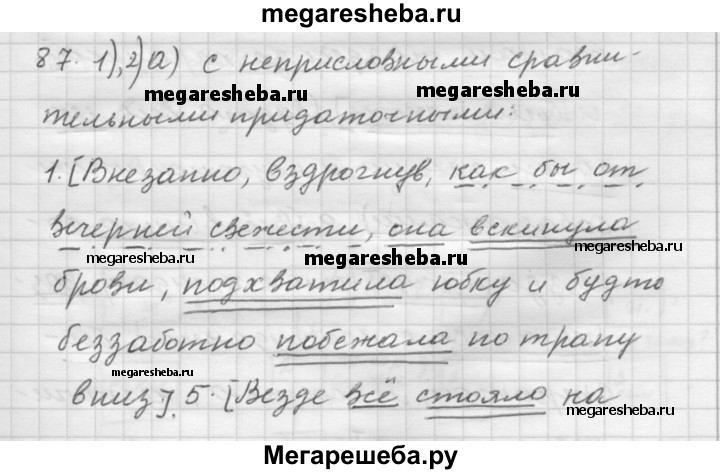 megaresheba.ru
87. 1), 2) а) с неприсловными сравни-
megaresheba.ru megaresheba.ru
тельными придаточными:
1. [Внезапно, вздрогнув, как бы от
вечерней свежести, она вскинула
megaresheba.ru
брови, подхватила юбку и будто
беззаботно побежала по трапу
megaresheba.ru megaresheba.ru
вниз]. 5. [Везде всё стояло на
Мегарешеба.ру